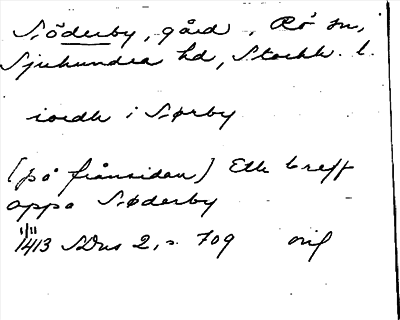 Söderby, gård, Rö sn,
Sjuhundra hd, Stockh. l.
iordh i Sørby
(på frånsidan) Eth breff
oppa Søderby
1/11 1413 SDns 2, s. 709 orig